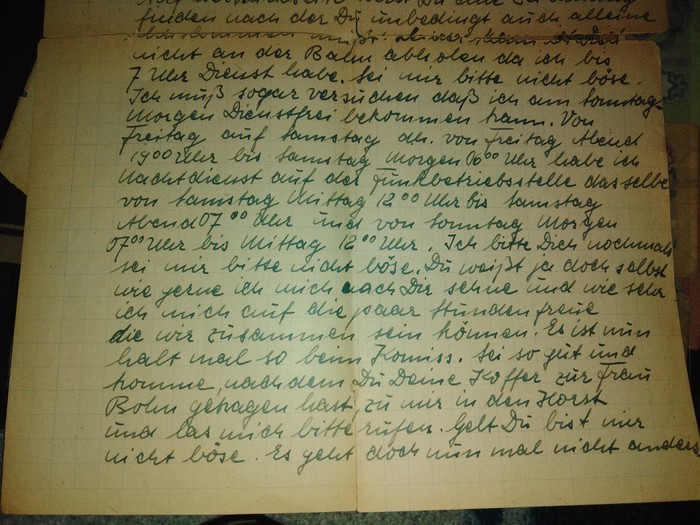 finden nach der Du unbedingt auch alleine
nicht an der Bahn abholen da ich bis
7 Uhr Dienst habe. Sei mir bitte nicht böse.
Ich muß sogar versuchen daß ich am Sonntag
Morgen Dienstfrei bekommen kann. Von
Freitag auf Samstag dh. von Freitag Abend
19⁰⁰ Uhr bis Samstag Morgen 06⁰⁰ Uhr habe ich
Nachtdienst auf der Funkbetriebsstelle dasselbe
von Samstag Mittag 12⁰⁰ Uhr bis Samstag
Abend 07⁰⁰ Uhr und von Sonntag Morgen
07⁰⁰ Uhr bis Mittag 12⁰⁰ Uhr. Ich bitte Dich nochmals
sei mir bitte nicht böse. Du weißt ja doch selbst
wie gerne ich mich nach Dir sehne und wie sehr
ich mich auf die paar Stunden freue
die wir zusammen sein können. Es ist nun
halt mal so beim Komiss. Sei so gut und
komme, nachdem Du Deine Koffer zur Frau
Bohn getragen hast, zu mir in den Horst
und las mich bitte rufen. Gelt Du bist mir
nicht böse. Es geht doch nun mal nicht anders,